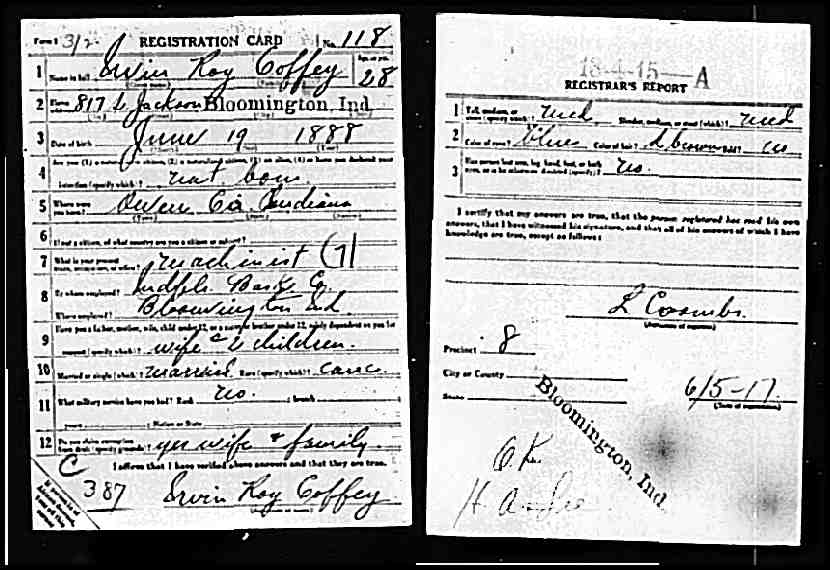 Form 1 312 REGISTRATION CARD No. 118
1 Name in full Ervin Roy Coffey Age, in yrs. 28
2 Home address 817 W. Jackson Bloomington, Ind.
3 Date of birth June 19 1888
4 Are you (1) a natural-born citizen, (2) a naturalized citizen, (3) an alien, (4) or have you declared your
intention (specify which)? nat born
5 Where were you born? Owen Co Indiana
6 If not a citizen, of what country are you a citizen or subject?
7 What is your present trade, occupation, or office? machinist
8 By whom employed? Indpls. Co.
Where employed? Bloomington Ind.
9 Have you a father, mother, wife, child under 12, or a sister or brother under 12, solely dependent on you for
support (specify which)? wife & 2 children.
10 Married or single (which)? married Race (specify which)? Cauc
11 What military service have you had? Rank no. ; branch
; Nation or State
12 Do you claim exemption from draft (specify grounds)? yes wife & family
I affirm that I have verified above answers and that they are true.
C 387 Ervin Roy Coffey
18-4-15 A
REGISTRAR'S REPORT
1 Tall, medium, or short (specify which)? med Slender, medium, or stout (which)? med
2 Color of eyes? Blue Color of hair? d brown Bald? no
3 Has person lost arm, leg, hand, foot, or both eyes, or is he otherwise disabled (specify)? no.
I certify that my answers are true, that the person registered has read his own
answers, that I have witnessed his signature, and that all of his answers of which I have
knowledge are true, except as follows:
L Coombs
(Signature of registrar)
Precinct 8
City or County
State
Bloomington, Ind.
6/5-17
(Date of registration)
O.K.